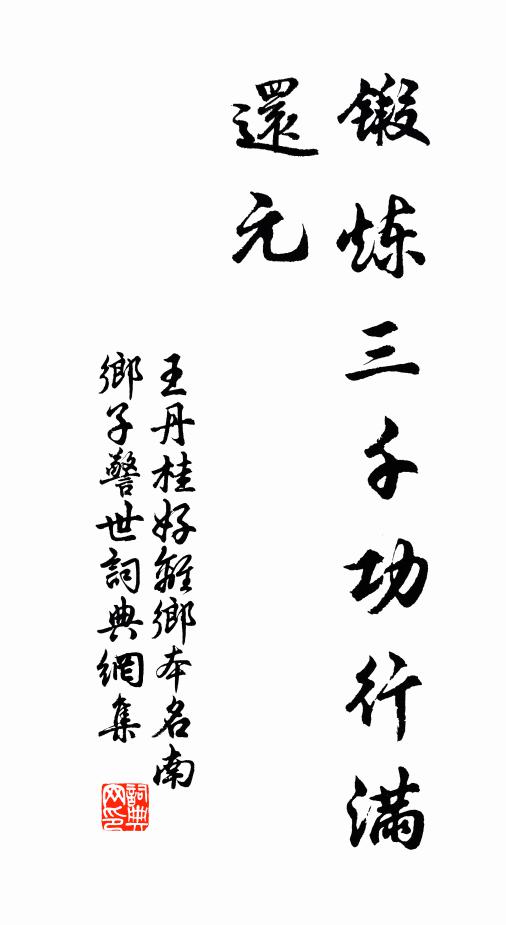 鍛炼三千功行滿
還元
王丹桂好離鄉本名南
鄉子警世詞典網集
詞典
网印